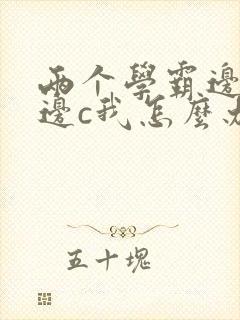 两个學霸邊
邊c我怎麼办
五十塊